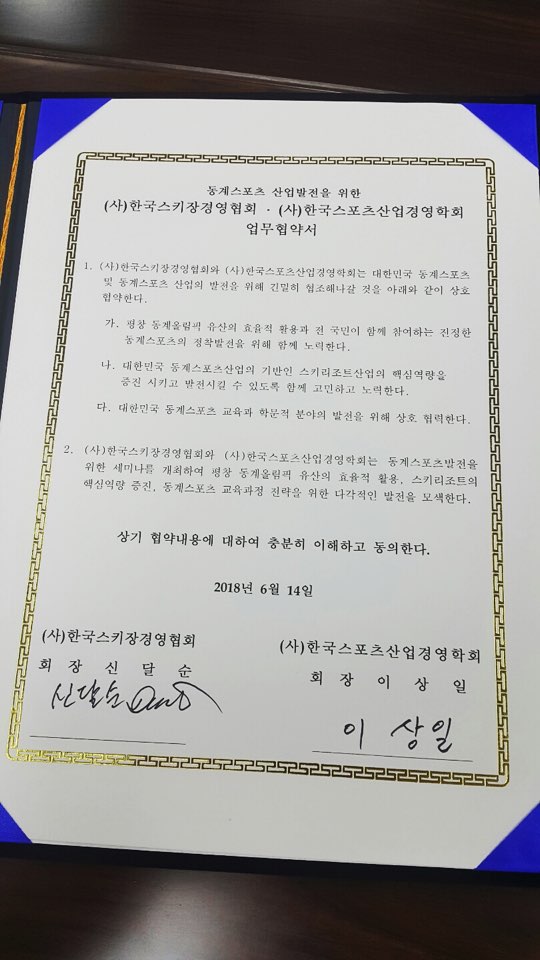 동계스포츠 산업발전을 위한
(사)한국스키장경영협회 · (사)한국스포츠산업경영학회
업무협약서
1. (사)한국스키장경영협회와 (사)한국스포츠산업경영학회는 대한민국 동계스포츠
및 동계스포츠 산업의 발전을 위해 긴밀히 협조해나갈 것을 아래와 같이 상호
협약한다.
가. 평창 동계올림픽 유산의 효율적 활용과 전 국민이 함께 참여하는 진정한
동계스포츠의 정착발전을 위해 함께 노력한다.
나. 대한민국 동계스포츠산업의 기반인 스키리조트산업의 핵심역량을
증진 시키고 발전시킬 수 있도록 함께 고민하고 노력한다.
다. 대한민국 동계스포츠 교육과 학문적 분야의 발전을 위해 상호 협력한다.
2. (사)한국스키장경영협회와 (사)한국스포츠산업경영학회는 동계스포츠발전을
위한 세미나를 개최하여 평창 동계올림픽 유산의 효율적 활용, 스키리조트의
핵심역량 증진, 동계스포츠 교육과정 전략을 위한 다각적인 발전을 모색한다.
상기 협약내용에 대하여 충분히 이해하고 동의한다.
2018년 6월 14일
(사)한국스키장경영협회
회 장 신 달 순
신달순
(사)한국스포츠산업경영학회
회 장 이 상 일
이 상일